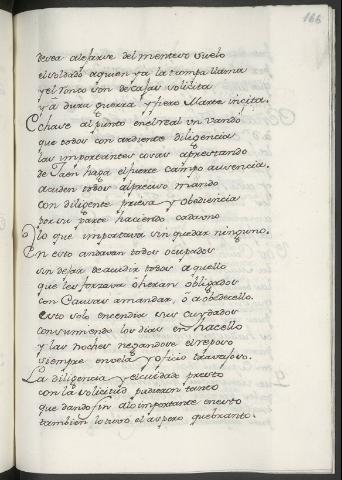 166
desea alejarse del materno suelo
el soldado a quien ya la trompa llama
y el ronco son de cajas solicita
y a dura guerra y fiero Marte incita.
Echase al punto en el real un vando
que todos con ardiente diligencia
las importantes cosas aprestando
de Jaen haga el fuerte campo ausencia.
acuden todos al preciso mando
con diligente priesa y obediencia
por su parte haciendo cada vno
lo que importava sin quedar ninguno.
En esto andavan todos ocupados
sin dejar de acudir todos a quello
que les forzava ò heran obligados
con causas a mandar, ò a obedecello.
esto solo encendia sus cuydados
consumiendo los dias en hacello
y las noches negandose el reposo
siempre en vela y oficio travajoso.
La diligencia y el cuidado presto
con la solicitud pudieron tanto
que dando fin a lo importante en esto
tambien lo tuvo el aspero quebranto.